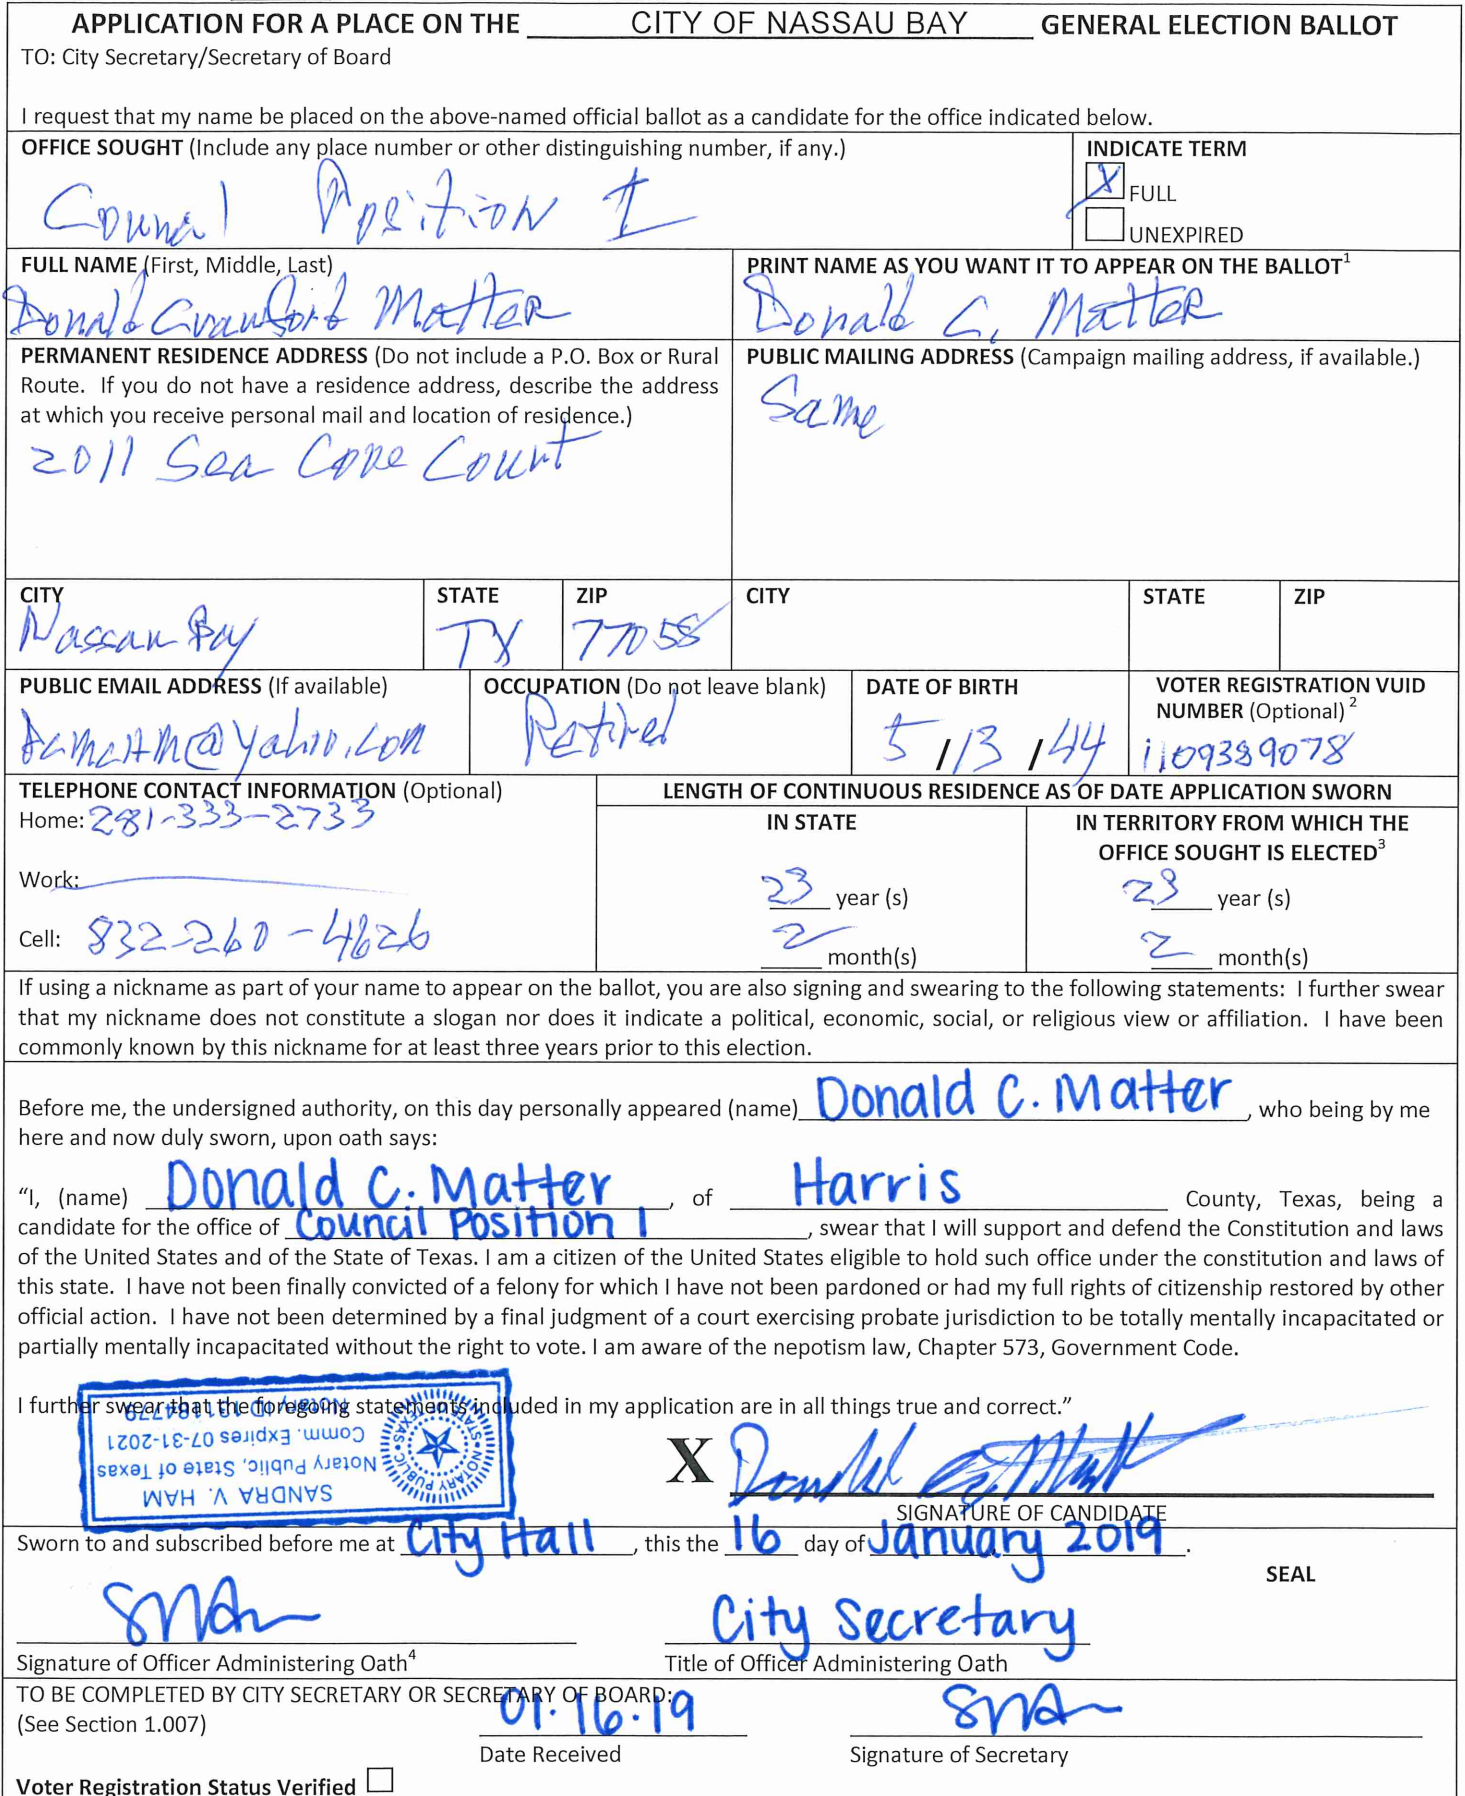 APPLICATION FOR A PLACE ON THE CITY OF NASSAU BAY GENERAL ELECTION BALLOT
TO: City Secretary/Secretary of Board
I request that my name be placed on the above-named official ballot as a candidate for the office indicated below.
OFFICE SOUGHT (Include any place number or other distinguishing number, if any.)
Council Position 1
INDICATE TERM
X FULL
UNEXPIRED
FULL NAME (First, Middle, Last)
Donald Crawford Matter
PRINT NAME AS YOU WANT IT TO APPEAR ON THE BALLOT¹
Donald C. Matter
PERMANENT RESIDENCE ADDRESS (Do not include a P.O. Box or Rural
Route. If you do not have a residence address, describe the address
at which you receive personal mail and location of residence.)
2011 Sea Cove Court
PUBLIC MAILING ADDRESS (Campaign mailing address, if available.)
Same
CITY
Nassau Bay
STATE
TX
ZIP
77058
CITY
STATE
ZIP
PUBLIC EMAIL ADDRESS (If available)
@yahoo.com
OCCUPATION (Do not leave blank)
Retired
DATE OF BIRTH
5/13/44
VOTER REGISTRATION VUID
NUMBER (Optional)²
1109389078
TELEPHONE CONTACT INFORMATION (Optional)
Home: 281-333-2733
Work:
Cell: 832-260-4626
LENGTH OF CONTINUOUS RESIDENCE AS OF DATE APPLICATION SWORN
IN STATE
23 year (s)
2 month(s)
IN TERRITORY FROM WHICH THE
OFFICE SOUGHT IS ELECTED³
23 year (s)
2 month(s)
If using a nickname as part of your name to appear on the ballot, you are also signing and swearing to the following statements: I further swear
that my nickname does not constitute a slogan nor does it indicate a political, economic, social, or religious view or affiliation. I have been
commonly known by this nickname for at least three years prior to this election.
Before me, the undersigned authority, on this day personally appeared (name) Donald C. Matter, who being by me
here and now duly sworn, upon oath says:
"I, (name) Donald C. Matter, of Harris County, Texas, being a
candidate for the office of Council Position 1, swear that I will support and defend the Constitution and laws
of the United States and of the State of Texas. I am a citizen of the United States eligible to hold such office under the constitution and laws of
this state. I have not been finally convicted of a felony for which I have not been pardoned or had my full rights of citizenship restored by other
official action. I have not been determined by a final judgment of a court exercising probate jurisdiction to be totally mentally incapacitated or
partially mentally incapacitated without the right to vote. I am aware of the nepotism law, Chapter 573, Government Code.
I further swear that the foregoing statements included in my application are in all things true and correct."
SANDRA V. HAM
Notary Public, State of Texas
Comm. Expires 07-31-2021
Notary ID
NOTARY PUBLIC STATE OF TEXAS
X
SIGNATURE OF CANDIDATE
Sworn to and subscribed before me at City Hall, this the 16 day of January 2019.
SEAL
City Secretary
Signature of Officer Administering Oath⁴
Title of Officer Administering Oath
TO BE COMPLETED BY CITY SECRETARY OR SECRETARY OF BOARD:
(See Section 1.007)
01.16.19
Date Received
Signature of Secretary
Voter Registration Status Verified